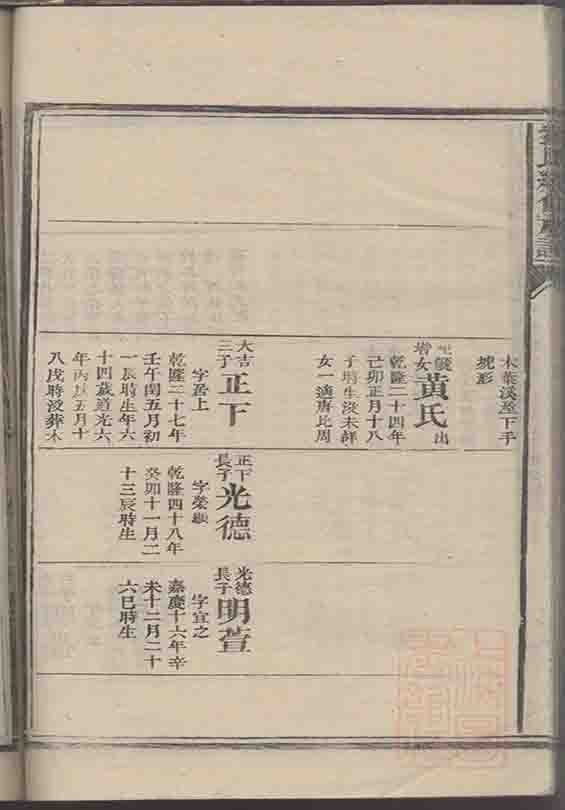 氏續修族譜
木葉溪屋下手
虎形
黃氏
出
乾隆二十四年
己卯正月十八
子時生沒未詳
女一適唐比周
大吉
三子
正下
字居上
乾隆二十七年
壬午閏五月初
一辰時生年六
十四歲道光六
年丙戌五月十
八戌時沒葬木
正下
長子
光德
字榮顯
乾隆四十八年
癸卯十一月二
十三辰時生
光德
長子
明萱
字宜之
嘉慶十六年辛
未十二月二十
六巳時生